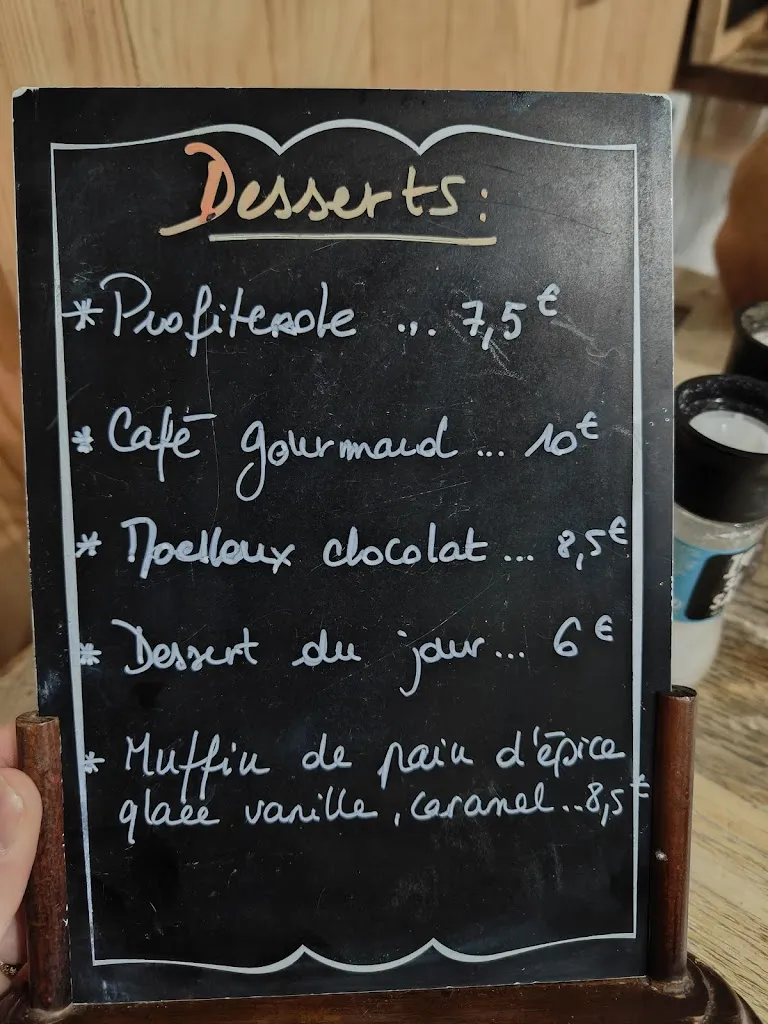 Desserts:
* Profiterole ... 7,5€
* Café gourmand ... 10€
* Moelleux chocolat ... 8,5€
* Dessert du jour ... 6€
* Muffin de pain d'épice
glace vanille, caramel ..8,5€